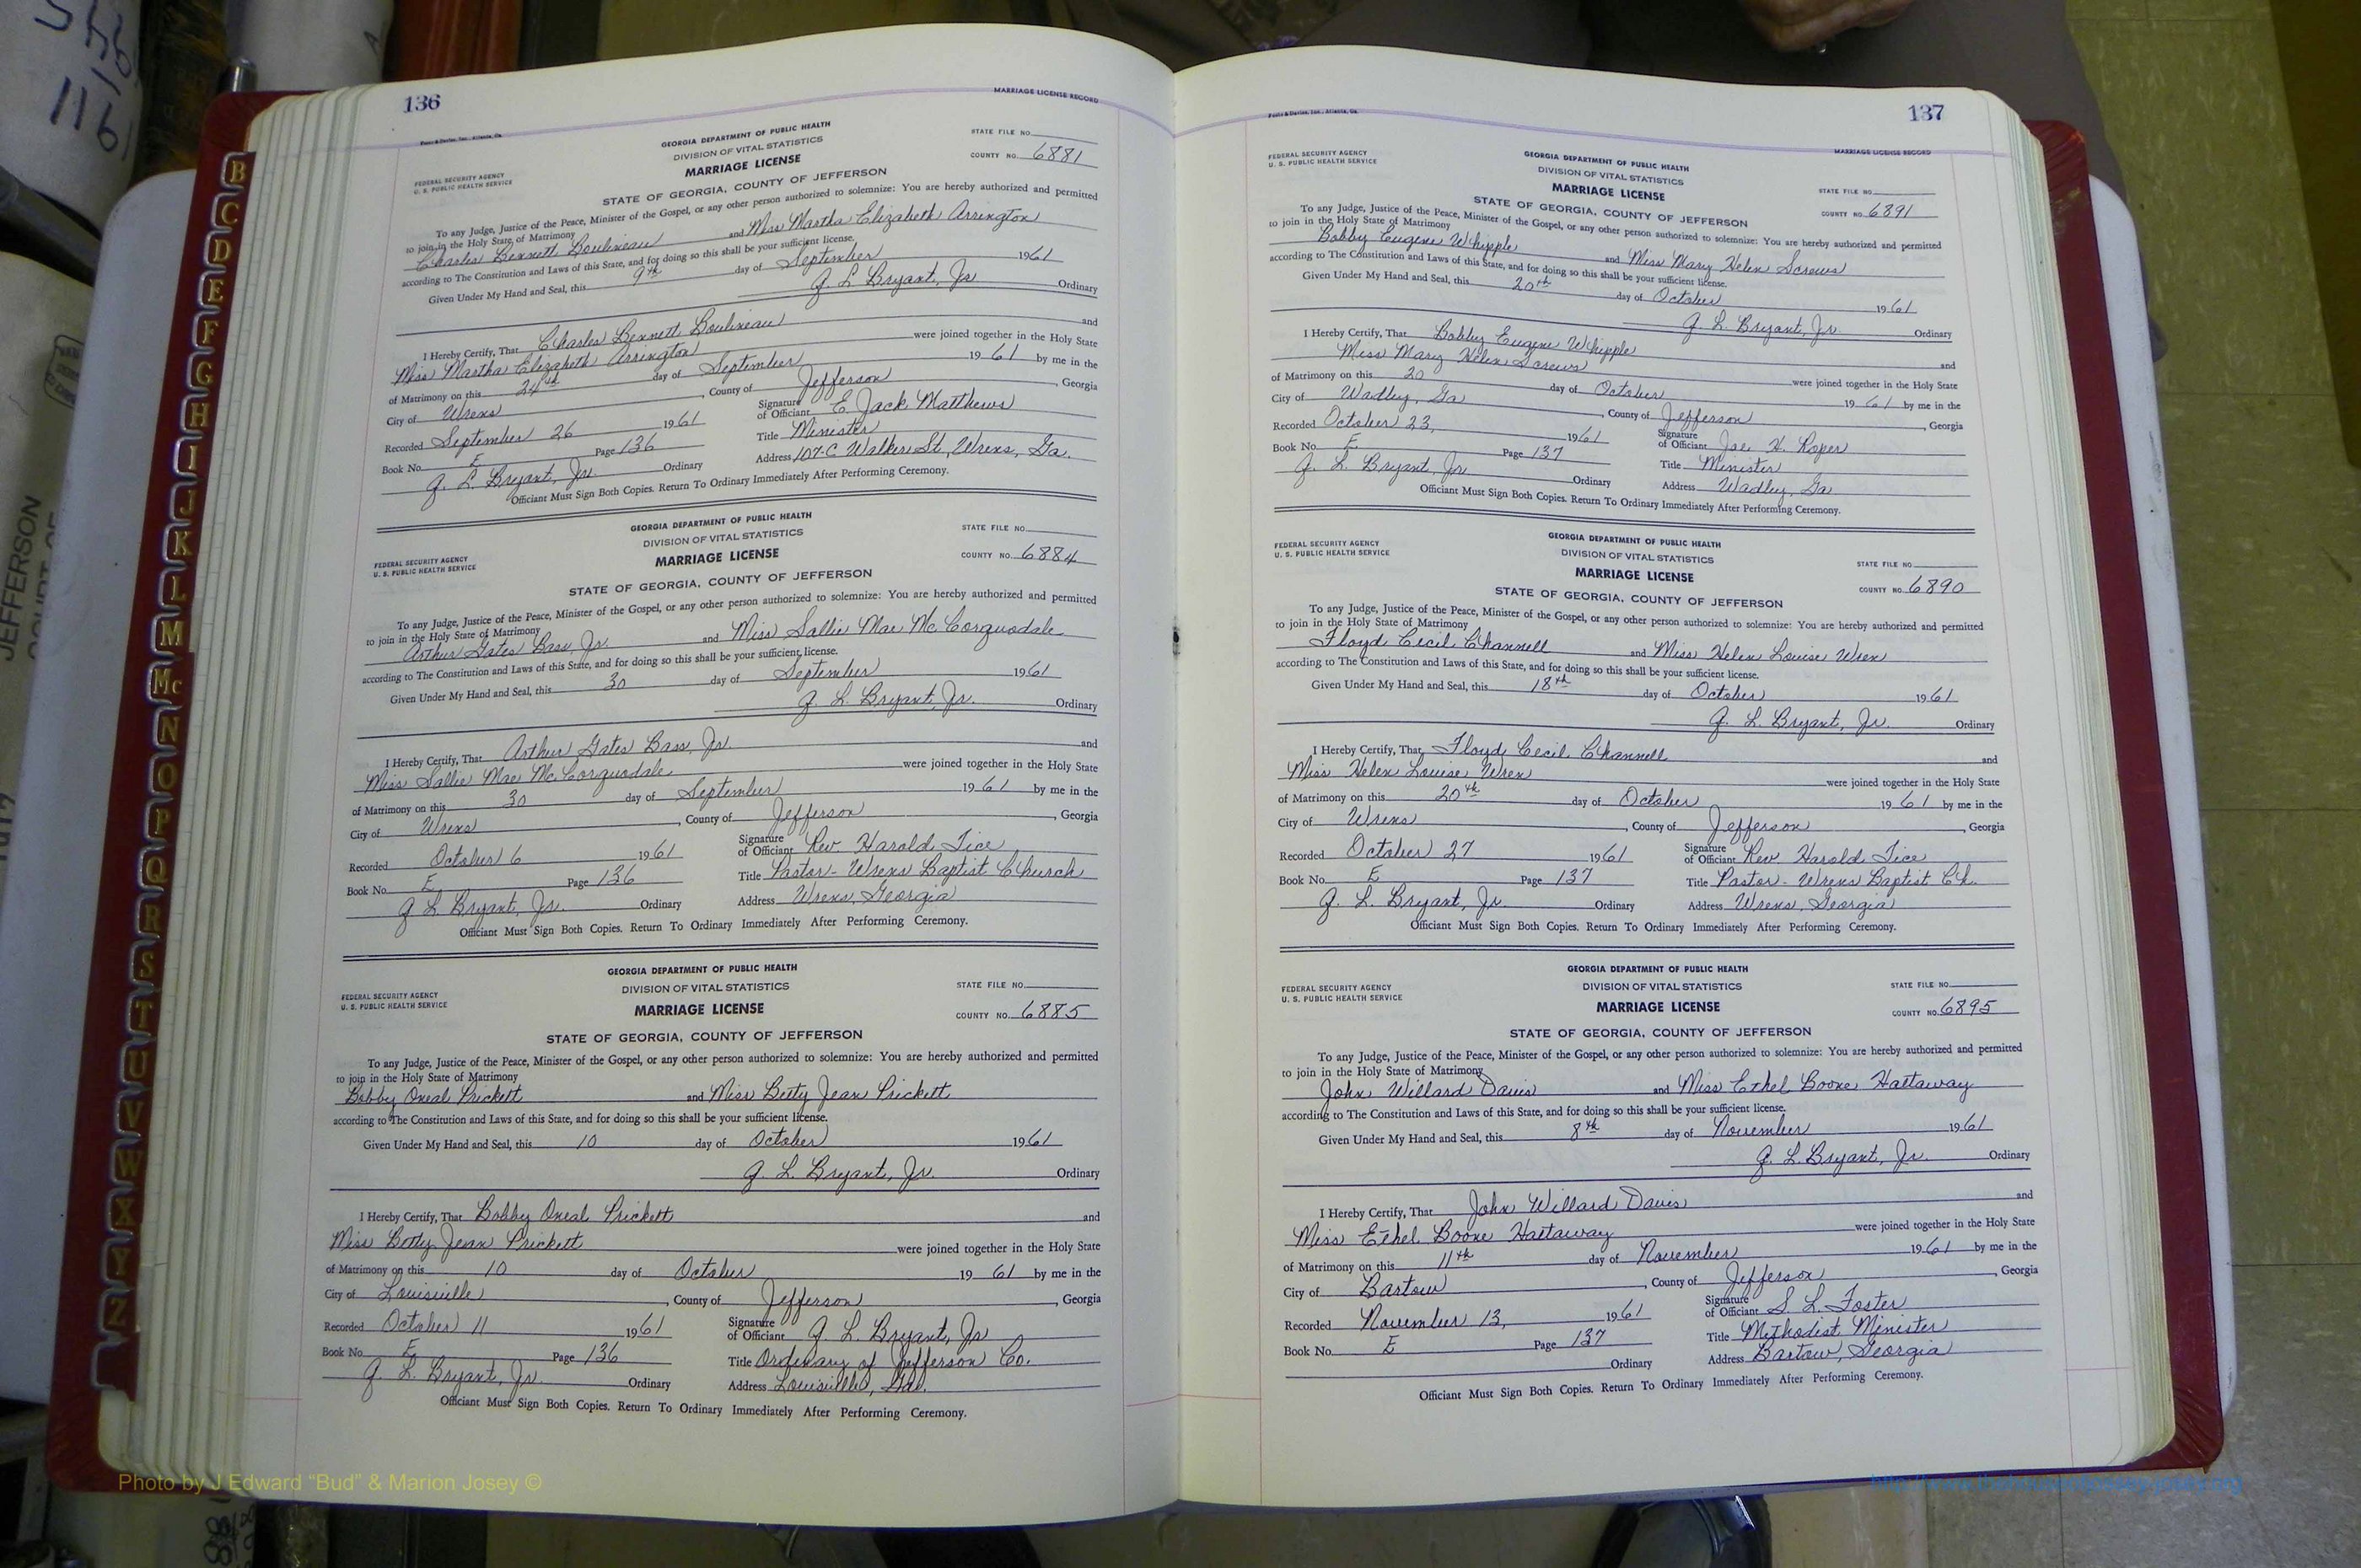 136
MARRIAGE LICENSE RECORD
GEORGIA DEPARTMENT OF PUBLIC HEALTH
DIVISION OF VITAL STATISTICS
MARRIAGE LICENSE
STATE FILE NO.
COUNTY NO. 6881
FEDERAL SECURITY AGENCY
U. S. PUBLIC HEALTH SERVICE
STATE OF GEORGIA, COUNTY OF JEFFERSON
To any Judge, Justice of the Peace, Minister of the Gospel, or any other person authorized to solemnize: You are hereby authorized and permitted
to join in the Holy State of Matrimony
Charles Bennett Boulineau and Miss Martha Elizabeth Arrington
according to The Constitution and Laws of this State, and for doing so this shall be your sufficient license.
Given Under My Hand and Seal, this 9th day of September 1961
J. L. Bryant, Jr. Ordinary
I Hereby Certify, That Charles Bennett Boulineau and
Miss Martha Elizabeth Arrington were joined together in the Holy State
of Matrimony on this day of September 1961 by me in the
City of Wrens, County of Jefferson, Georgia
Recorded September 26 1961 Signature of Officiant E. Jack Matthews
Book No. E Page 136 Title Minister
J. L. Bryant, Jr. Ordinary Address 107-C Walker St., Wrens, Ga.
Officiant Must Sign Both Copies. Return To Ordinary Immediately After Performing Ceremony.
GEORGIA DEPARTMENT OF PUBLIC HEALTH
DIVISION OF VITAL STATISTICS
MARRIAGE LICENSE
STATE FILE NO.
COUNTY NO. 6884
FEDERAL SECURITY AGENCY
U. S. PUBLIC HEALTH SERVICE
STATE OF GEORGIA, COUNTY OF JEFFERSON
To any Judge, Justice of the Peace, Minister of the Gospel, or any other person authorized to solemnize: You are hereby authorized and permitted
to join in the Holy State of Matrimony
Arthur Gates Bass, Jr. and Miss Sallie Mae McCorquodale
according to The Constitution and Laws of this State, and for doing so this shall be your sufficient license.
Given Under My Hand and Seal, this 30 day of September 1961
J. L. Bryant, Jr. Ordinary
I Hereby Certify, That Arthur Gates Bass, Jr. and
Miss Sallie Mae McCorquodale were joined together in the Holy State
of Matrimony on this 30 day of September 1961 by me in the
City of Wrens, County of Jefferson, Georgia
Recorded October 6 1961 Signature of Officiant Rev. Harold Tice
Book No. E Page 136 Title Pastor - Wrens Baptist Church
J. L. Bryant, Jr. Ordinary Address Wrens, Georgia
Officiant Must Sign Both Copies. Return To Ordinary Immediately After Performing Ceremony.
GEORGIA DEPARTMENT OF PUBLIC HEALTH
DIVISION OF VITAL STATISTICS
MARRIAGE LICENSE
STATE FILE NO.
COUNTY NO. 6885
FEDERAL SECURITY AGENCY
U. S. PUBLIC HEALTH SERVICE
STATE OF GEORGIA, COUNTY OF JEFFERSON
To any Judge, Justice of the Peace, Minister of the Gospel, or any other person authorized to solemnize: You are hereby authorized and permitted
to join in the Holy State of Matrimony
Bobby Oneal Prickett and Miss Betty Jean Prickett
according to The Constitution and Laws of this State, and for doing so this shall be your sufficient license.
Given Under My Hand and Seal, this 10 day of October 1961
J. L. Bryant, Jr. Ordinary
I Hereby Certify, That Bobby Oneal Prickett and
Miss Betty Jean Prickett were joined together in the Holy State
of Matrimony on this 10 day of October 1961 by me in the
City of Louisville, County of Jefferson, Georgia
Recorded October 11 1961 Signature of Officiant J. L. Bryant, Jr.
Book No. E Page 136 Title Ordinary of Jefferson Co.
J. L. Bryant, Jr. Ordinary Address Louisville, Ga.
Officiant Must Sign Both Copies. Return To Ordinary Immediately After Performing Ceremony.
137
MARRIAGE LICENSE RECORD
FEDERAL SECURITY AGENCY
U. S. PUBLIC HEALTH SERVICE
GEORGIA DEPARTMENT OF PUBLIC HEALTH
DIVISION OF VITAL STATISTICS
MARRIAGE LICENSE
STATE FILE NO.
COUNTY NO. 6891
STATE OF GEORGIA, COUNTY OF JEFFERSON
To any Judge, Justice of the Peace, Minister of the Gospel, or any other person authorized to solemnize: You are hereby authorized and permitted
to join in the Holy State of Matrimony
Bobby Eugene Whipple and Miss Mary Helen Screws
according to The Constitution and Laws of this State, and for doing so this shall be your sufficient license.
Given Under My Hand and Seal, this 20th day of October 1961
J. L. Bryant, Jr. Ordinary
I Hereby Certify, That Bobby Eugene Whipple
Miss Mary Helen Screws and
of Matrimony on this 20 day of October were joined together in the Holy State
City of Wadley, Ga 1961 by me in the
County of Jefferson, Georgia
Recorded October 23, 1961 Signature of Officiant Joe H. Roper
Book No. E Page 137 Title Minister
J. L. Bryant, Jr. Ordinary Address Wadley, Ga
Officiant Must Sign Both Copies. Return To Ordinary Immediately After Performing Ceremony.
FEDERAL SECURITY AGENCY
U. S. PUBLIC HEALTH SERVICE
GEORGIA DEPARTMENT OF PUBLIC HEALTH
DIVISION OF VITAL STATISTICS
MARRIAGE LICENSE
STATE FILE NO.
COUNTY NO. 6890
STATE OF GEORGIA, COUNTY OF JEFFERSON
To any Judge, Justice of the Peace, Minister of the Gospel, or any other person authorized to solemnize: You are hereby authorized and permitted
to join in the Holy State of Matrimony
Floyd Cecil Channell and Miss Helen Louise Wren
according to The Constitution and Laws of this State, and for doing so this shall be your sufficient license.
Given Under My Hand and Seal, this 18th day of October 1961
J. L. Bryant, Jr. Ordinary
I Hereby Certify, That Floyd Cecil Channell and
Miss Helen Louise Wren were joined together in the Holy State
of Matrimony on this 20th day of October 1961 by me in the
City of Wrens, County of Jefferson, Georgia
Recorded October 27 1961 Signature of Officiant Rev Harold Tice
Book No. E Page 137 Title Pastor - Wrens Baptist Ch.
J. L. Bryant, Jr. Ordinary Address Wrens, Georgia
Officiant Must Sign Both Copies. Return To Ordinary Immediately After Performing Ceremony.
GEORGIA DEPARTMENT OF PUBLIC HEALTH
DIVISION OF VITAL STATISTICS
MARRIAGE LICENSE
FEDERAL SECURITY AGENCY
U. S. PUBLIC HEALTH SERVICE
STATE FILE NO.
COUNTY NO. 6895
STATE OF GEORGIA, COUNTY OF JEFFERSON
To any Judge, Justice of the Peace, Minister of the Gospel, or any other person authorized to solemnize: You are hereby authorized and permitted
to join in the Holy State of Matrimony
John Willard Davis and Miss Ethel Boone Hattaway
according to The Constitution and Laws of this State, and for doing so this shall be your sufficient license.
Given Under My Hand and Seal, this 8th day of November 1961
J. L. Bryant, Jr. Ordinary
I Hereby Certify, That John Willard Davis and
Miss Ethel Boone Hattaway were joined together in the Holy State
of Matrimony on this 11th day of November 1961 by me in the
City of Bartow, County of Jefferson, Georgia
Recorded November 13, 1961 Signature of Officiant S. L. Foster
Book No. E Page 137 Title Methodist Minister
Ordinary Address Bartow, Georgia
Officiant Must Sign Both Copies. Return To Ordinary Immediately After Performing Ceremony.
B
C
D
E
F
G
H
I
J
K
L
M
Mc
N
O
P
Q
R
S
T
U
V
W
X
Y
Z
JEFFERSON
Photo by J Edward “Bud” & Marion Josey ©